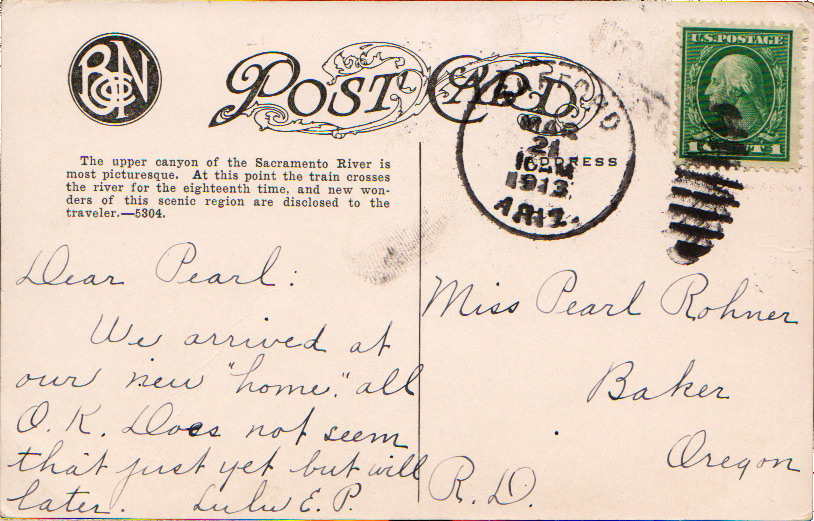 POST CARD
U.S. POSTAGE
MAR
21
1913
ARIZ.
ADDRESS
1 CENT 1
The upper canyon of the Sacramento River is
most picturesque. At this point the train crosses
the river for the eighteenth time, and new won-
ders of this scenic region are disclosed to the
traveler.—5304.
Dear Pearl:
We arrived at
our new "home." all
O.K. Does not seem
that just yet but will
later. Lulu E. P.
Miss Pearl Rohner
Baker
Oregon
R.D.